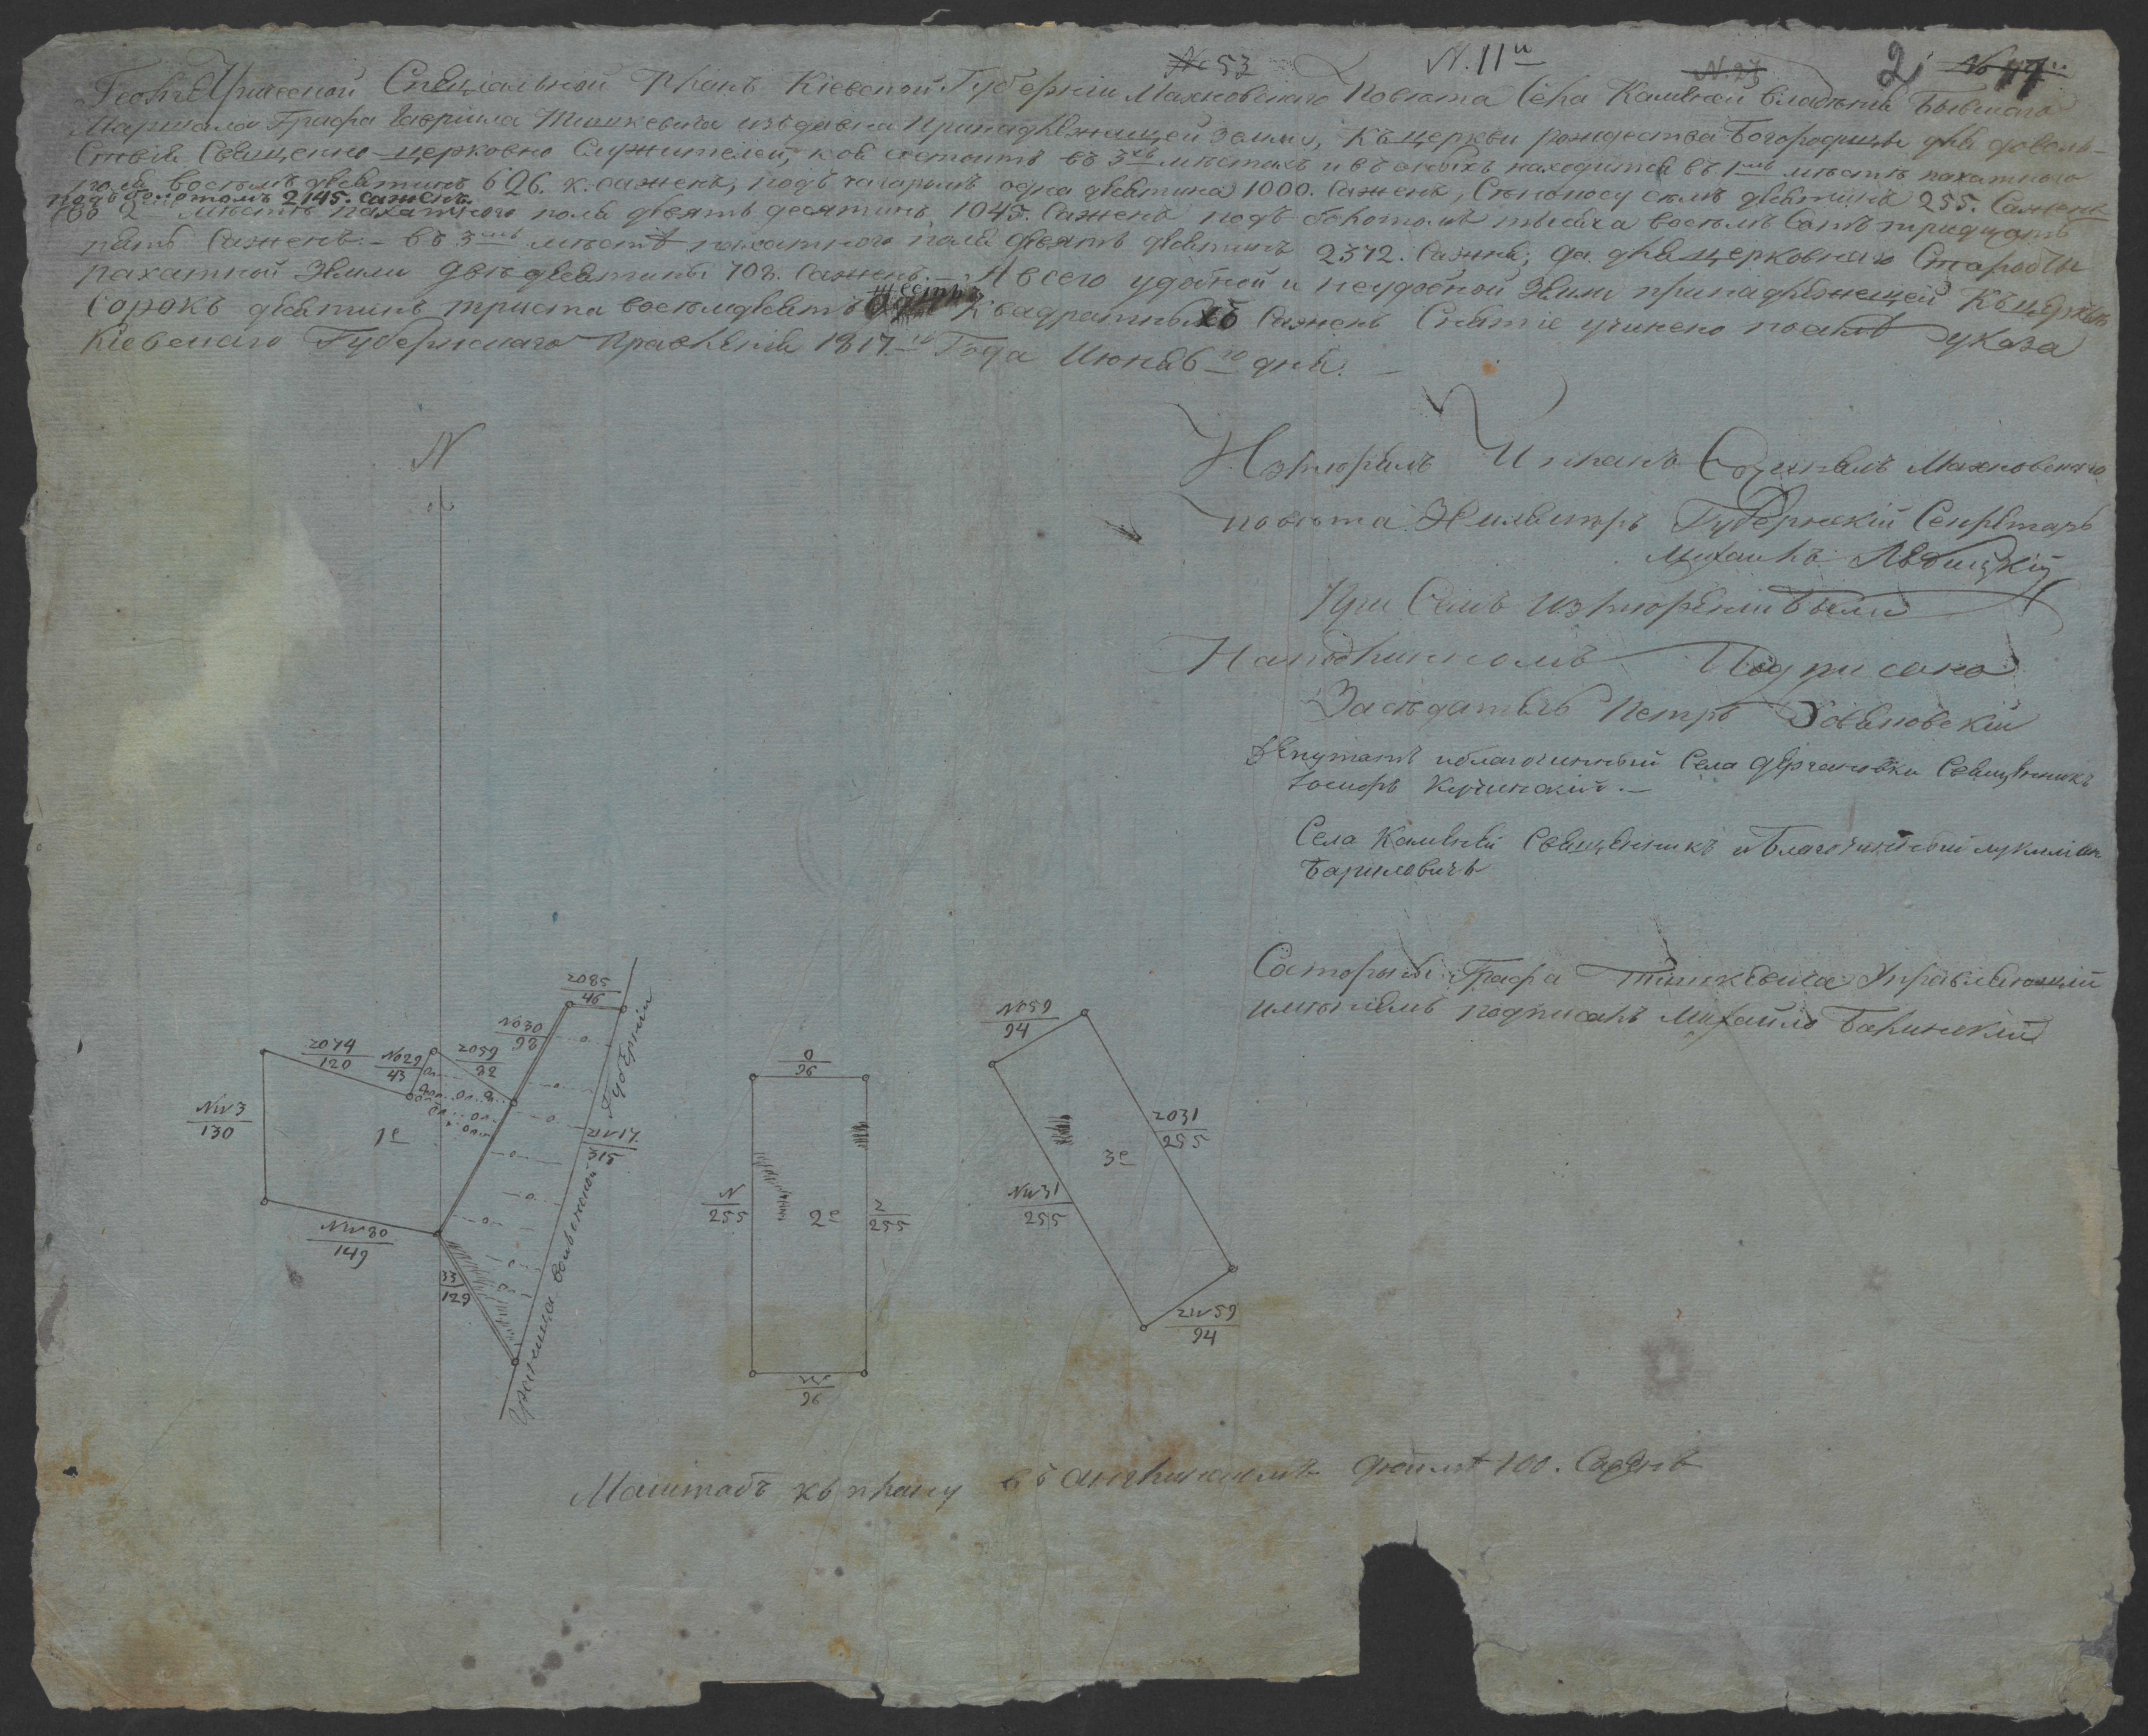 № 53 N. 11й N. 27 2 № 44
Геометрической Спеціальной Планъ Кіевской Губерніи Махновскаго Повѣта Села Каменной владѣнія Бывшаго
Маршала Графа Гавріила Тишкевича издавна принадлежащей земли, къ церкви рождества Богородицы для доволь-
ствія Священно-церковно Служителей, коя состоитъ въ 3хъ мѣстахъ и въ оныхъ находится въ 1мъ мѣстѣ пахатного
поля восемъ десятинъ 626. к. сажень, подъ чагарымъ одна десятина 1000. Сажень, Сѣнокосу семъ десятинъ 255. Сажень
подъ болотомъ 2145. сажень.
Въ 2 мѣстѣ пахатного поля девять десятинъ 1045. Сажень подъ болотомъ тысяча восемъ Сотъ тридцать
пять Сажень. – въ 3мъ мѣстѣ пахатного поля девять десятинъ 2372. Сажня, да для церковнаго Старосты
пахатной Земли двѣ десятины 702. Сажень. – А всего удобной и неудобной Земли принадлежащей Къ церкви
шесть
Сорокъ десятинъ триста восемдесятъ Квадратныхъ Сажень Снятіе учинено по силѣ указа
Кіевскаго Губернскаго Правленія 1817го Года Июня 6го дня. –
N
На мѣрялъ И планъ Сочинялъ Махновскаго
повѣта Землемѣръ Губернскій Секретарь
Михаилъ Лебицкій
При Семъ измѣреніи были
На подлинномъ Подписано
Засѣдатель Петръ
Депутатъ и благочинный Села Священникъ
Іосифъ Кучинскій. –
Села Каменной Священникъ и Благочинный
Бариловичъ
Со стороны Графа Тишкевича Управляющій
имѣніемъ подписалъ Михайло Балинскій
2085
46
NO30
92
2074
120
NO29
43
2059
92
NW3
130
1е
2W17.
315
NW80
149
33
129
Граница Волынской Губерніи
0
96
N
255
2е
2
255
W
96
NO59
94
2031
255
3е
NW31
255
2W59
94
Маштабъ къ плану въ англискимъ дюймѣ 100. Сажень